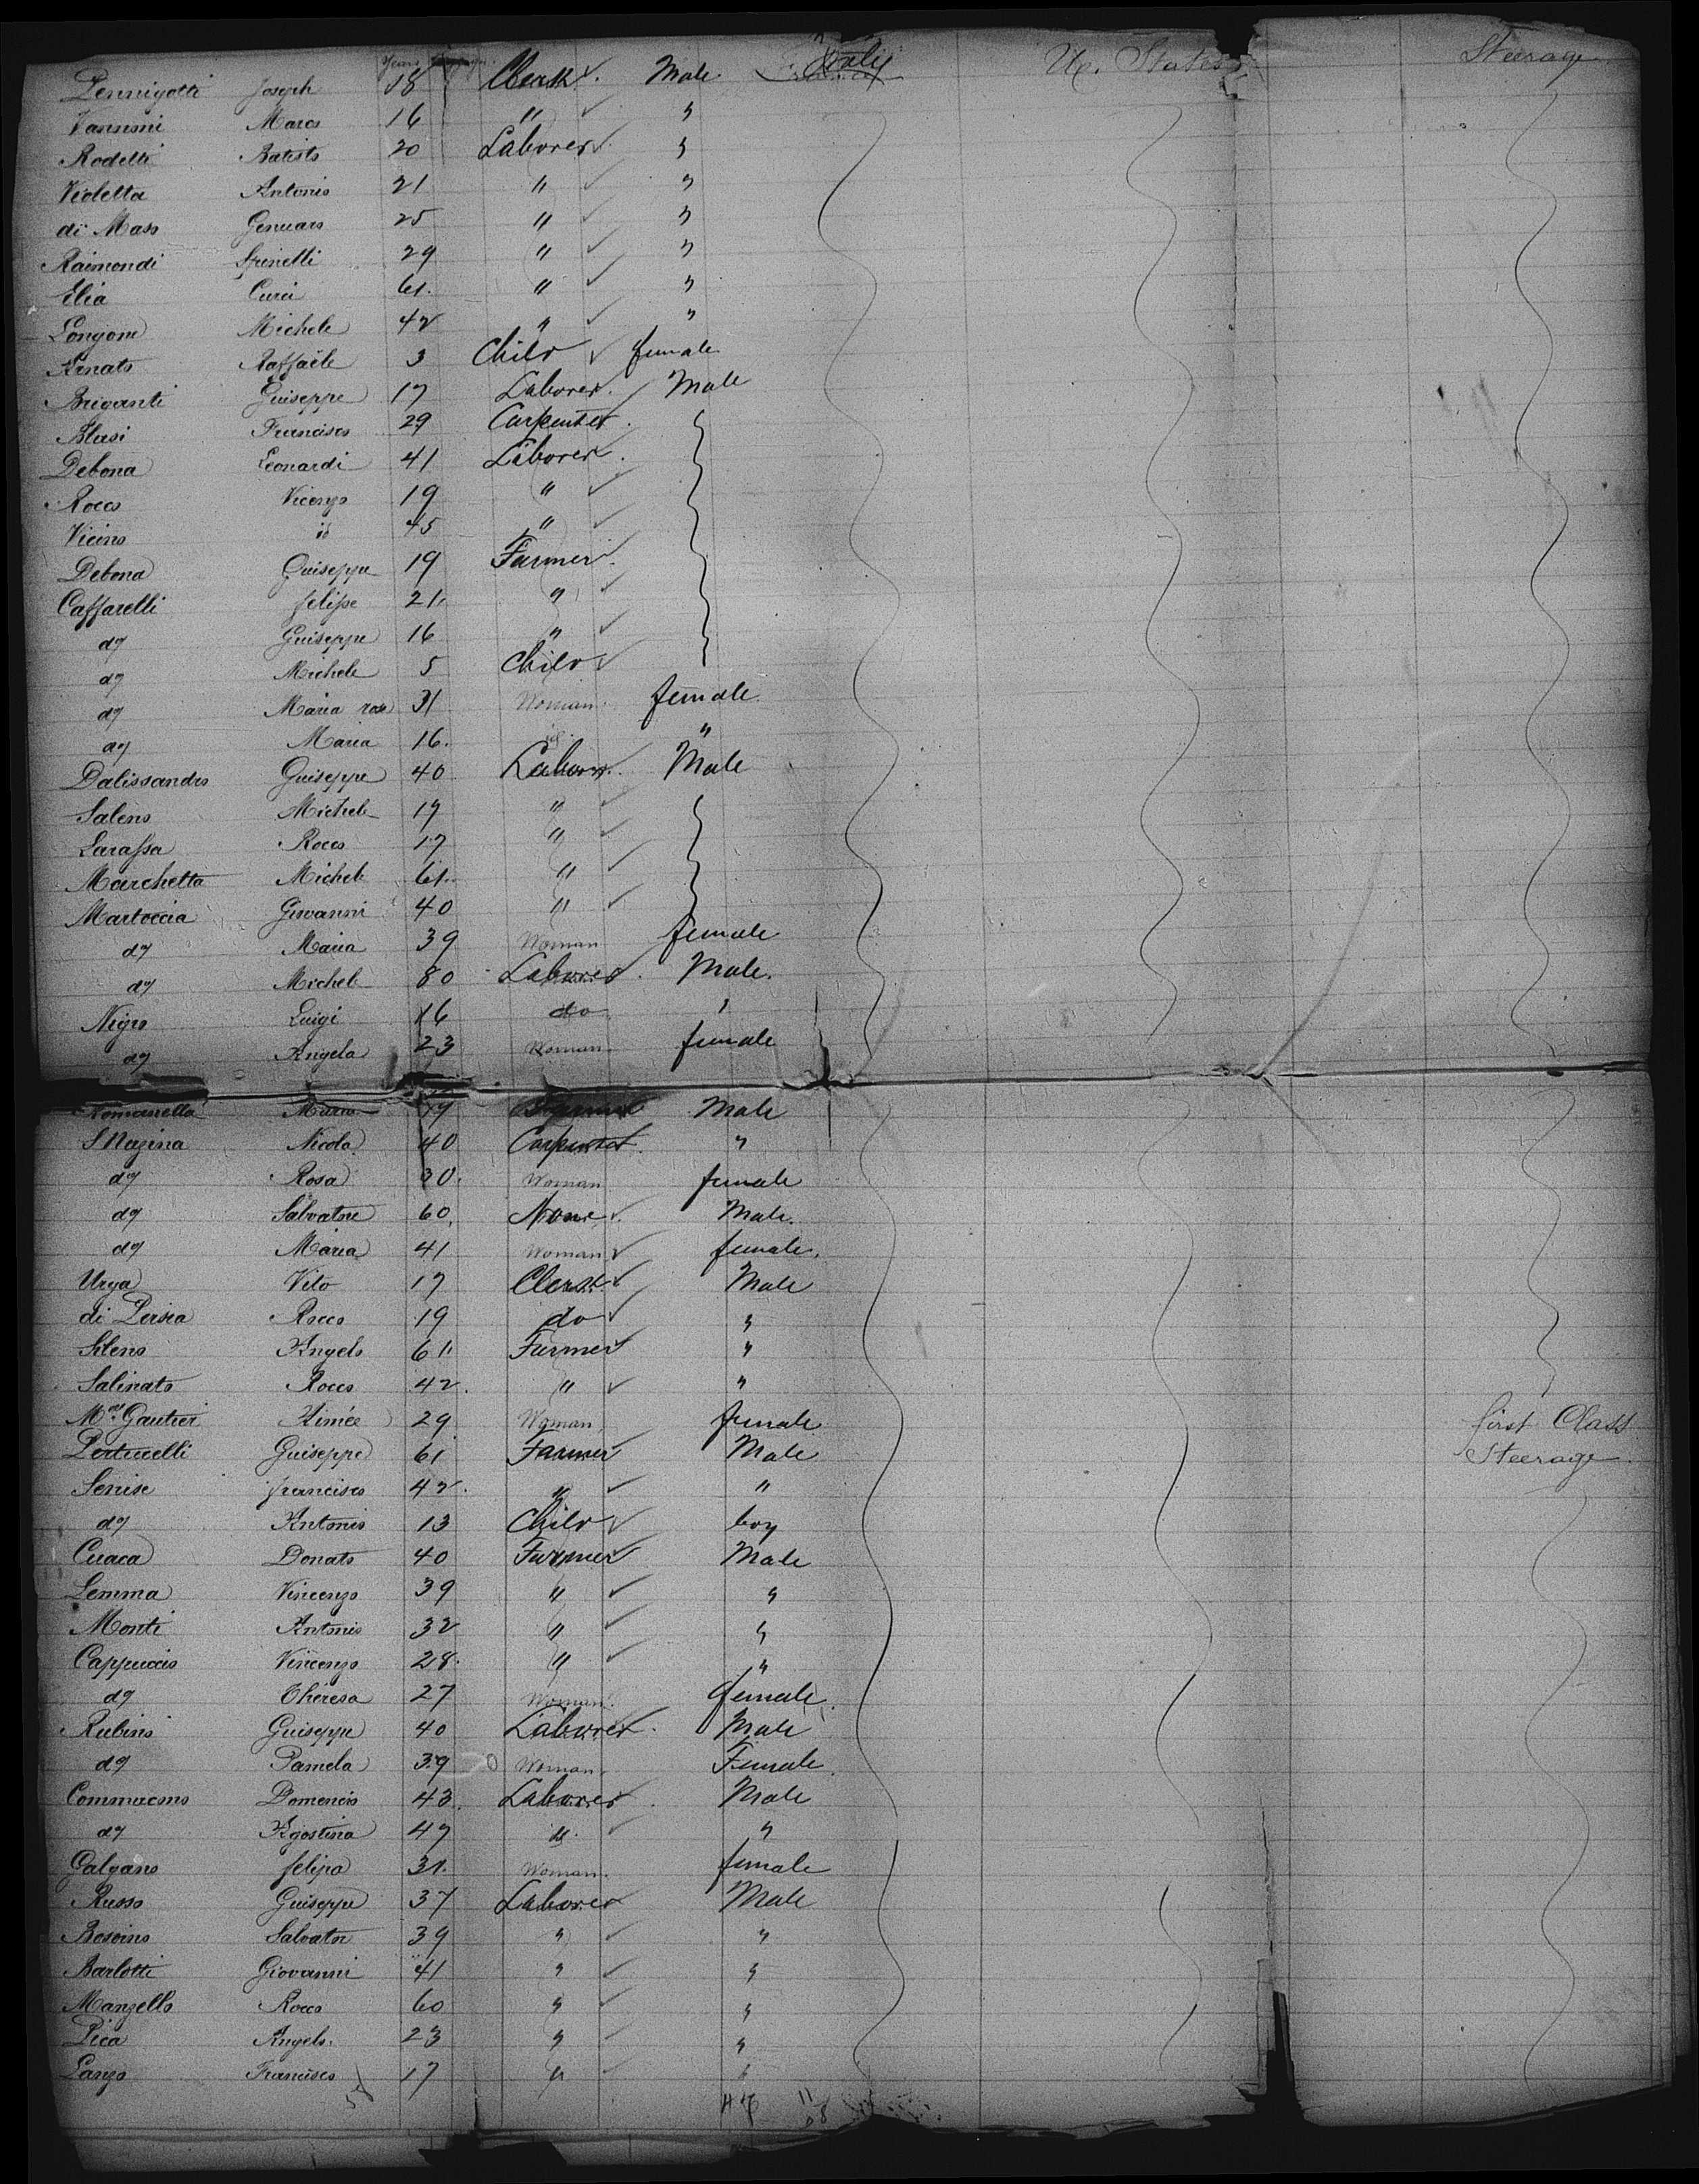 Pennigotti Joseph 18 Clerk Male Italy U. States Steerage
Vannoni Marco 16 " "
Rodetti Batisto 20 Laborer "
Violetta Antonio 21 " "
di Maso Genuaro 25 " "
Raimondi Spinelli 29 " "
Elia Curci 61. " "
Longone Michele 42 " "
Arnato Raffaële 3 Child female
Briganti Guiseppe 17 Laborer Male
Blasi Francisco 29 Carpenter
Debona Leonardi 41 Laborer
Rocco Vicenzo 19 "
Vicino id 45 "
Debona Guiseppe 19 Farmer
Caffarelli felipe 21 "
dº Guiseppe 16 "
dº Michele 5 Child
dº Maria rosa 31 Woman female
dº Maria 16. id "
Dalissandro Guiseppe 40 Laborer Male
Saleno Michele 17 "
Larassa Rocco 17 "
Marchetta Michele 61. "
Martoccia Giovanni 40 "
dº Maria 39 Woman female
dº Michele 80 Laborer Male.
Nigro Luigi 16 do "
dº Angela 23 Woman female
Romanella Male
SMazina Nicola 40 Carpenter "
dº Rosa 30. Woman female
dº Salvatore 60. None Male.
dº Maria 41 Woman female.
Urga Vito 17 Clerk Male
di Persia Rocco 19 do "
Sileno Angelo 61 Farmer "
Salinato Rocco 42. " "
Mme Gautier Aimée 29 Woman female first Class
Pertucelli Guiseppe 61 Farmer Male Steerage
Senise francisco 42. " "
dº Antonio 13 Child boy
Cuaca Donato 40 Farmer Male
Lemma Vincenzo 39 " "
Monti Antonio 32 " "
Cappuccio Vincenzo 28. " "
dº Theresa 27 Woman. female
Rubino Guiseppe 40 Laborer Male
dº Pamela 39 Woman Female
Commacono Domenico 43. Laborer Male
dº Agostina 47 " "
Galgano felipa 31. Woman. female
Russo Guiseppe 37 Laborer Male
Bosoino Salvator 39 " "
Barlotti Giovanni 41 " "
Manzello Rocco 60 " "
Pica Angelo. 23 " "
Lanzo Francisco 17 " "
58 11